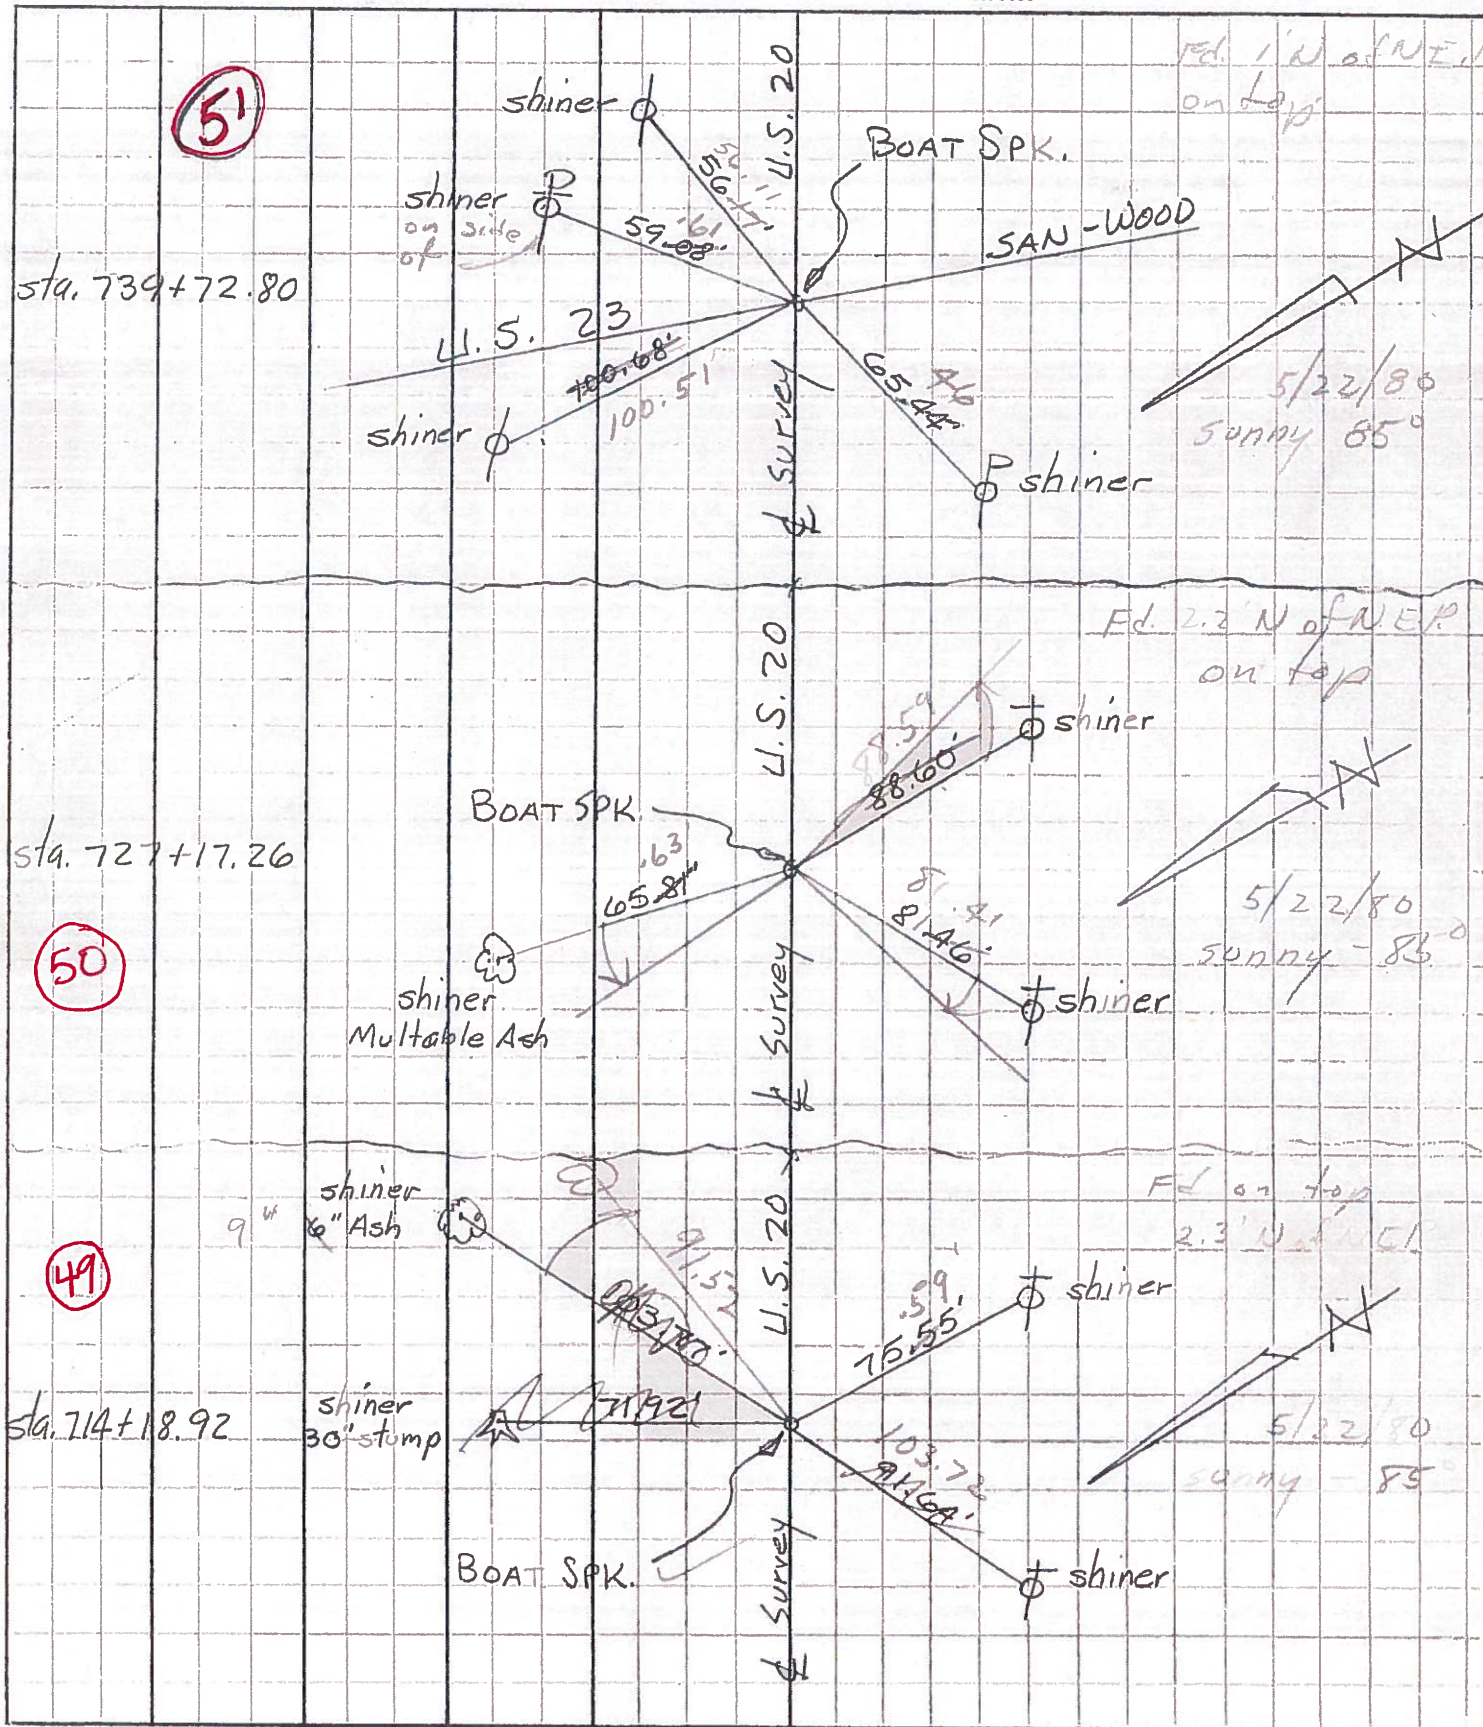 51
Fd. 1' N of N.E.P.
on top
shiner
U.S. 20
BOAT SPK.
56.17'
shiner
on side
of
59.08'
.61
SAN-WOOD
N
sta. 739+72.80
U.S. 23
100.68'
100.51
65.44'
.46
5/22/80
sunny 85°
shiner
shiner
℄ Survey
Fd. 2.2' N of N.E.P.
on top
U.S. 20
88.59
88.60'
shiner
N
BOAT SPK.
sta. 727+17.26
.63
65.81'
81.46'
5/22/80
sunny - 85°
50
shiner
Multable Ash
shiner
℄ Survey
shiner
9" 6" Ash
Fd on top
2.3' N of NEP
49
91.52
U.S. 20
.59
75.55'
shiner
N
sta. 714+18.92
shiner
30" stump
71.92'
103.78
91.64'
5/22/80
sunny - 85°
BOAT SPK.
shiner
℄ Survey